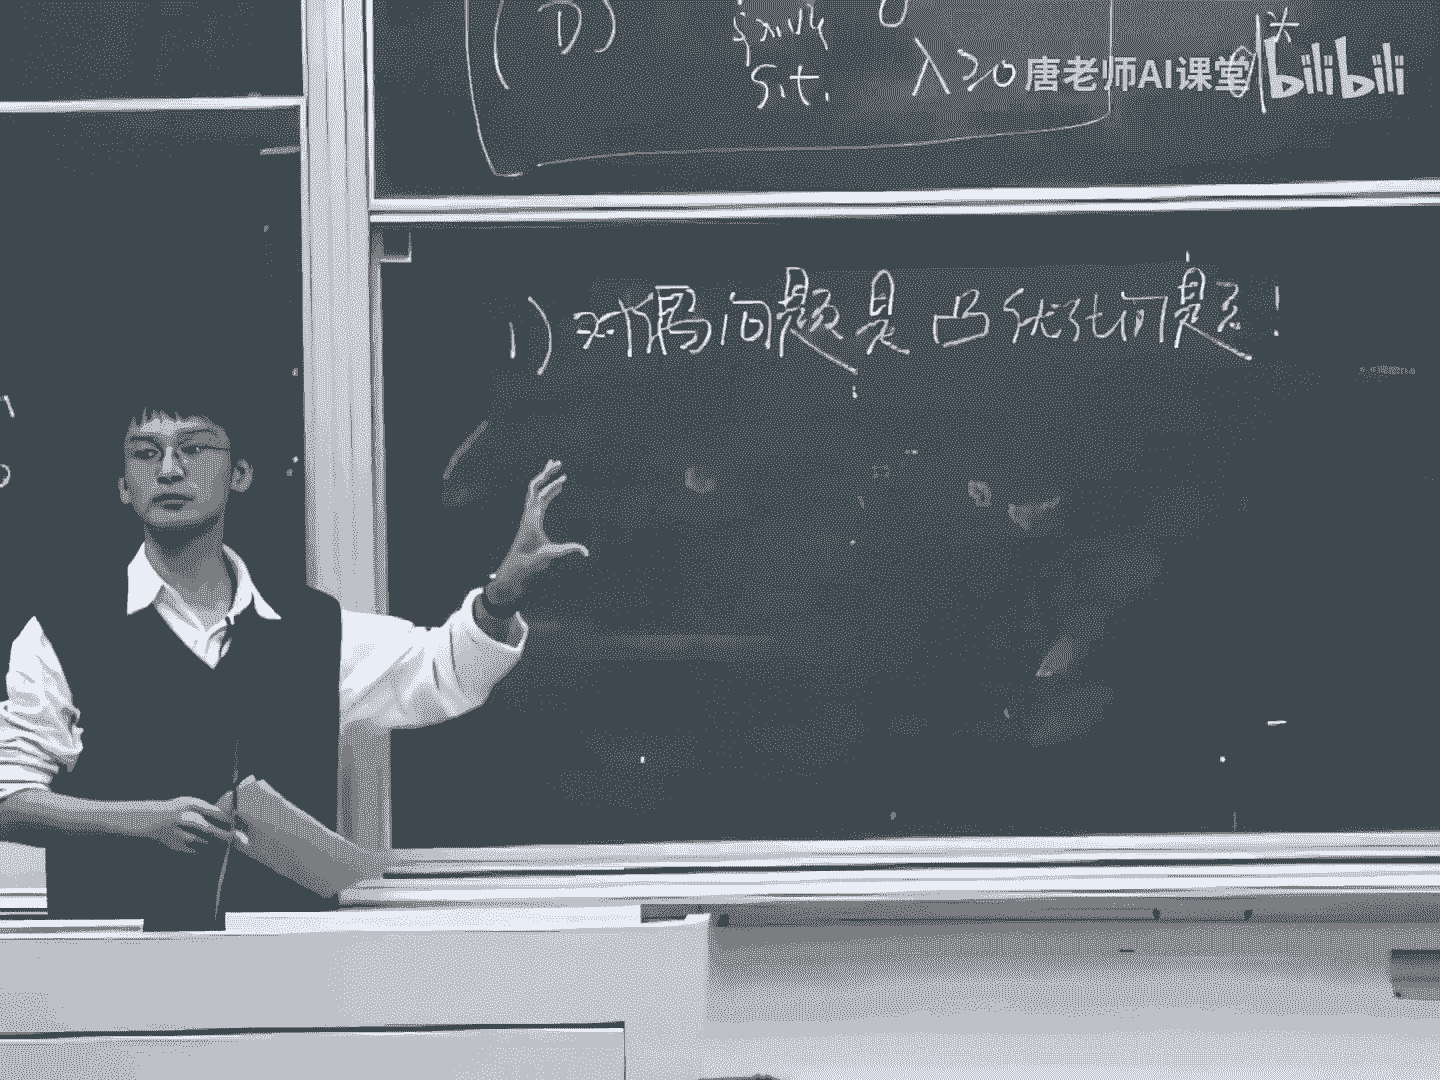 (D)
s.t. λ≥0
唐老师AI课堂 bilibili
1) 对偶问题是凸优化问题!